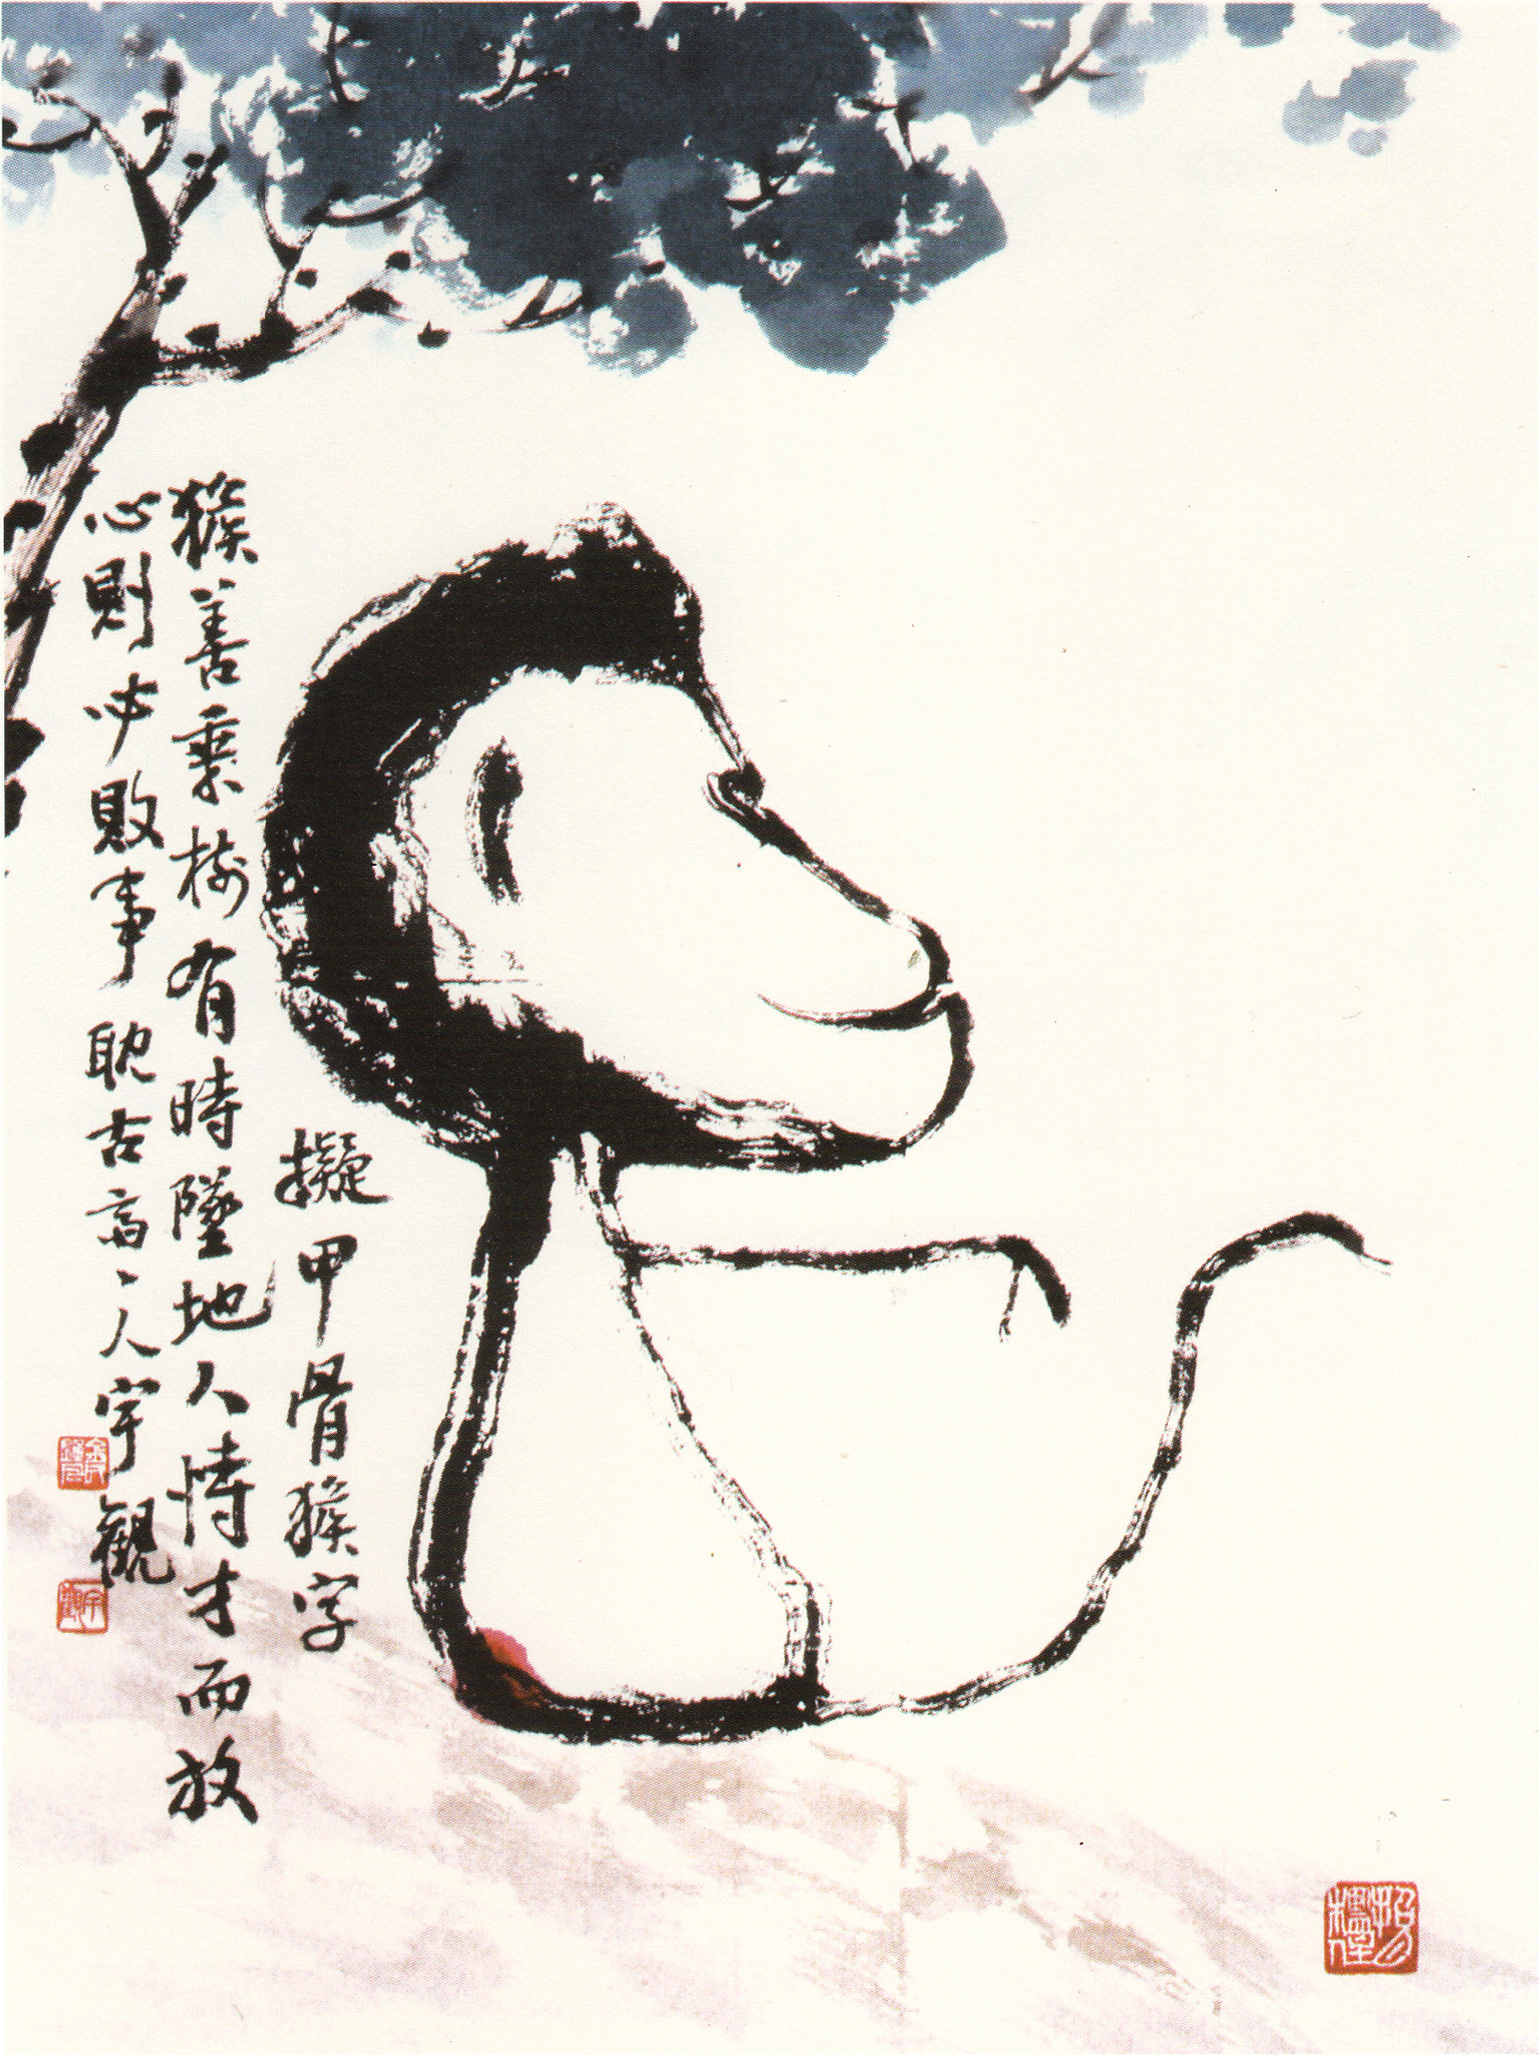 擬甲骨猴字
猴善乘樹有時墜地人恃才而放
心則必敗事耽古高人宇觀
宇觀